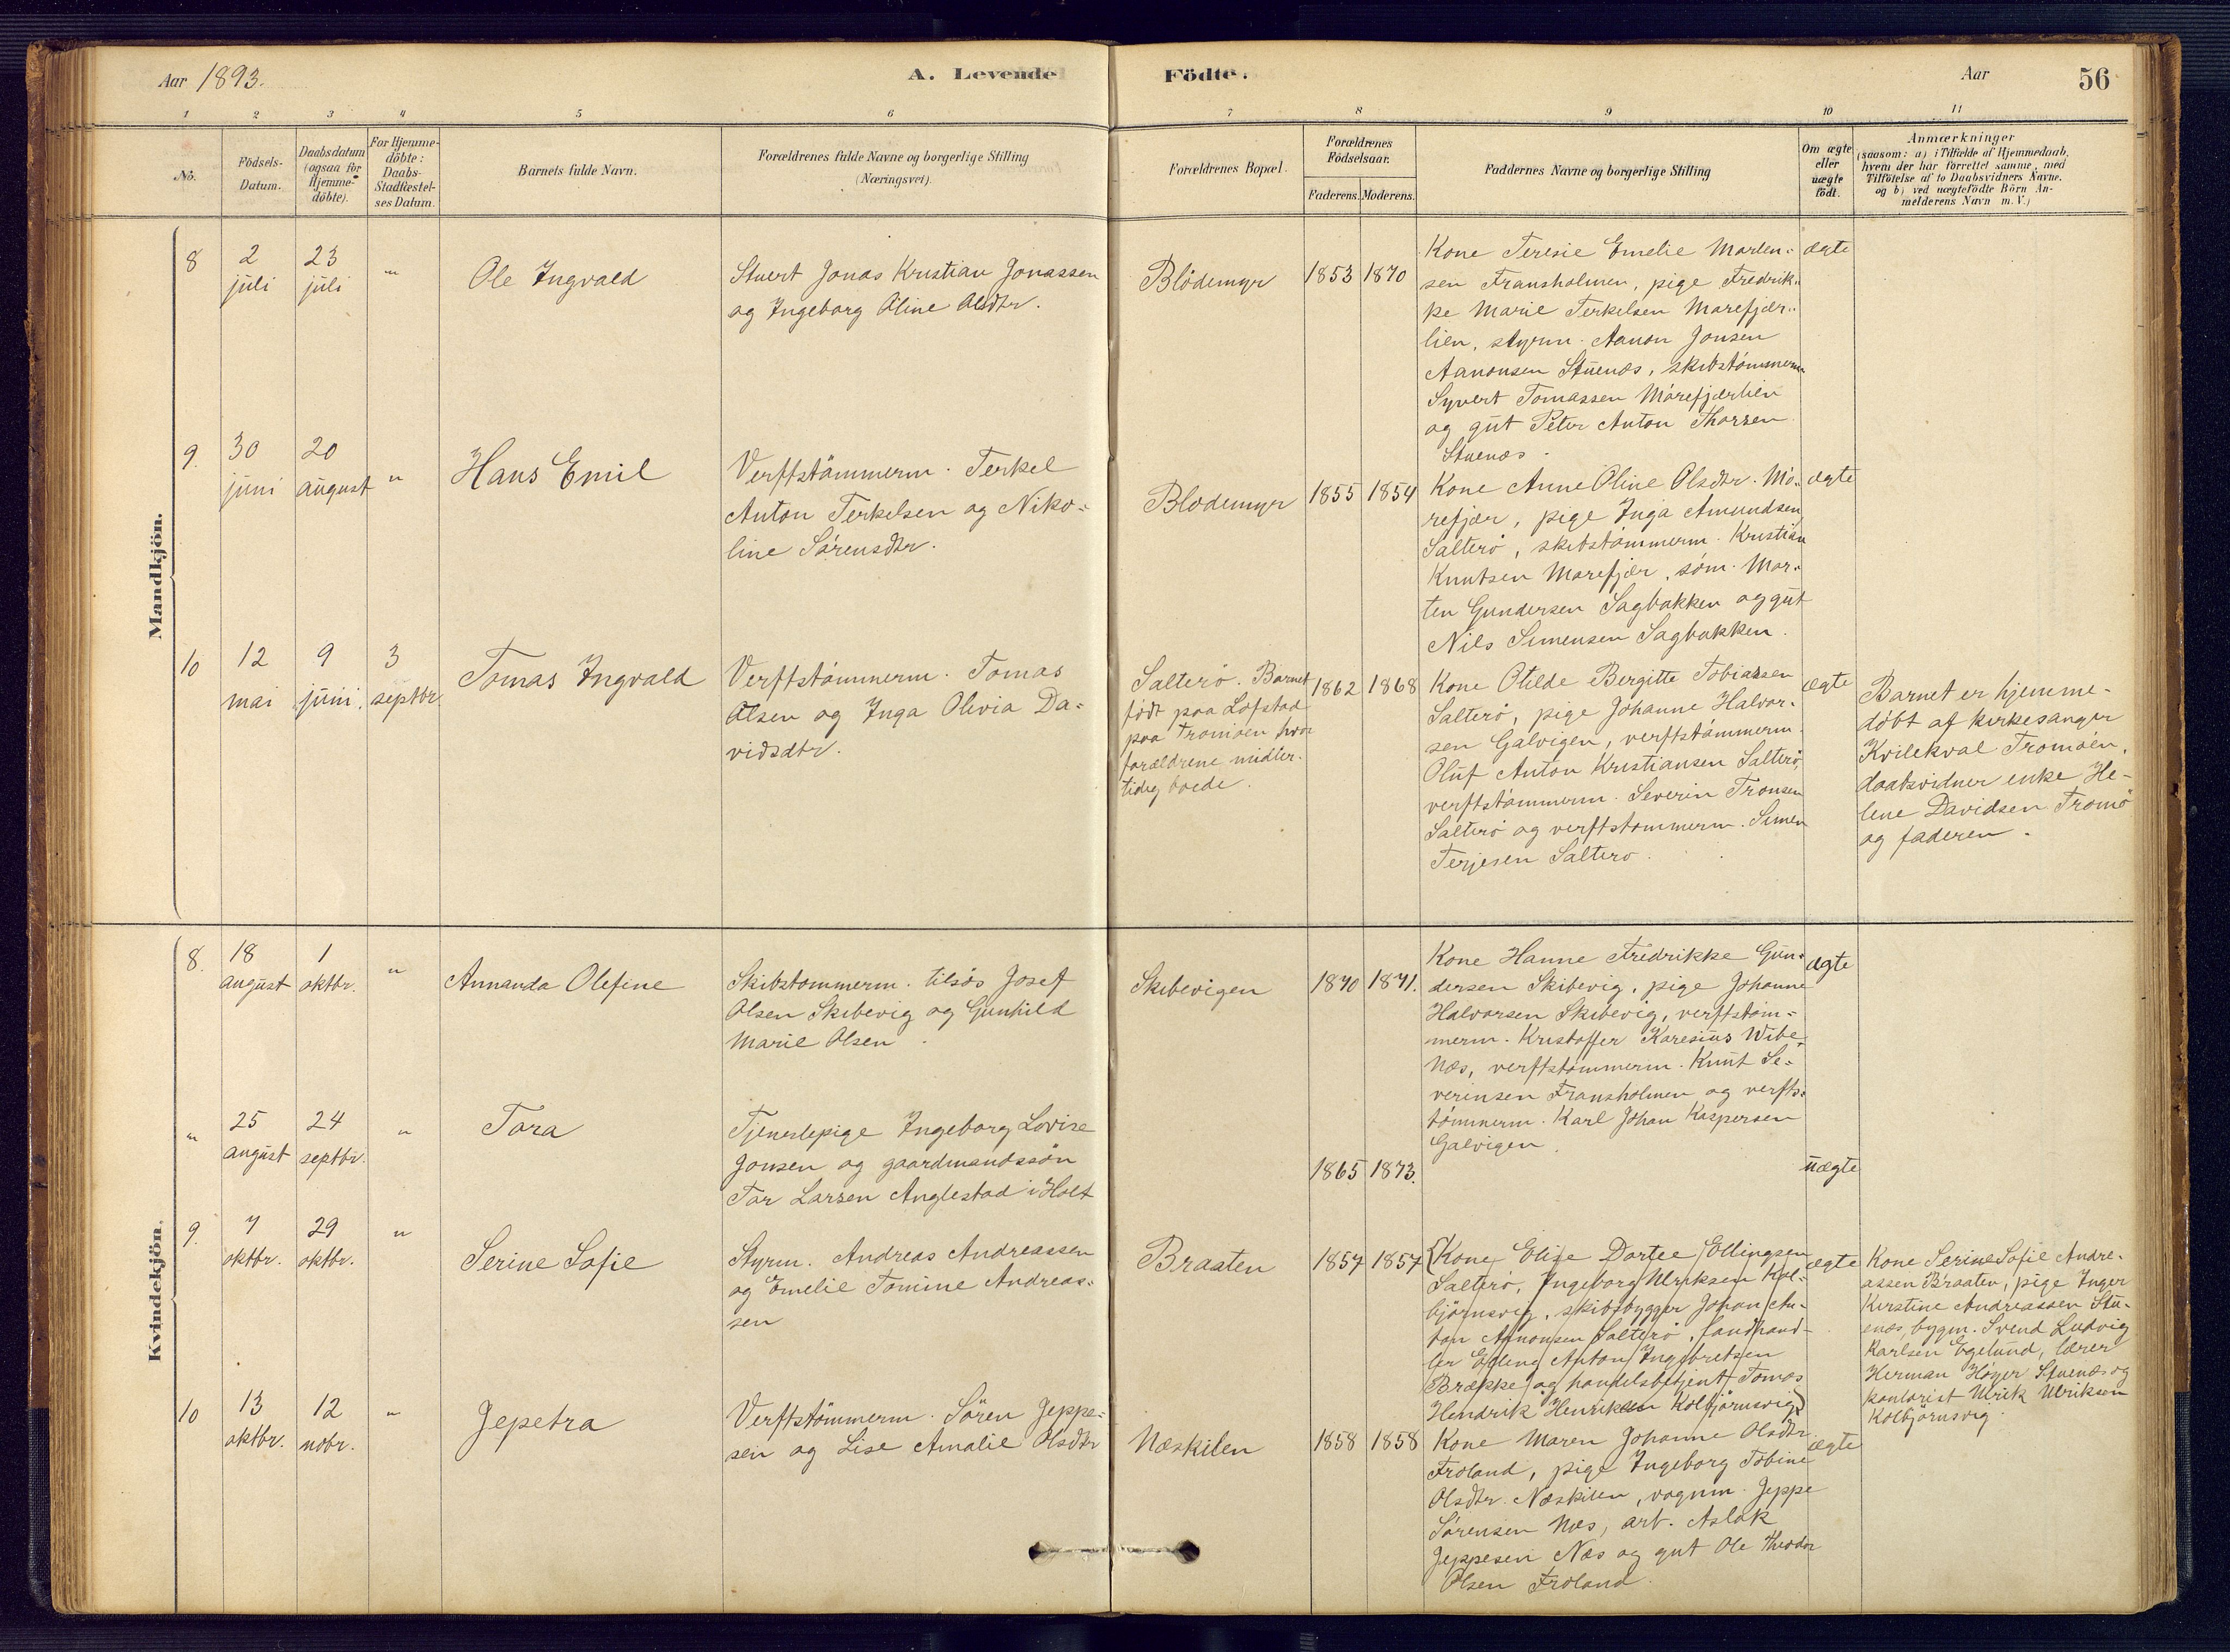 Aar 1893.
A. Levende
Födte.
Aar
56
1 2 3 4 5 6 7 8 9 10 11
No.
Födsels-
Datum.
Daabsdatum
(ogsaa for
Hjemme-
döbte).
For Hjemme-
döbte:
Daabs-
Stadfæstel-
ses Datum.
Barnets fulde Navn.
Forældrenes fulde Navne og borgerlige Stilling
(Næringsvei).
Forældrenes Bopæl.
Forældrenes
Födselsaar.
Faderens. Moderens.
Faddernes Navne og borgerlige Stilling
Om ægte
eller
uægte
födt.
Anmærkninger
(saasom: a) i Tilfælde af Hjemmedaab,
hvem der har forrettet samme, med
Tilföielse af to Daabsvidners Navne,
og b) ved uægtefödte Börn An-
melderens Navn m. V.)
Mandkjön.
8
2
juli
23
juli
"
Ole Ingvald
Stuert Jonas Kristian Jonassen
og Ingeborg Oline Olsdtr.
Blödemyr
1853 1870
Kone Teresie Emelie Morten-
sen Fransholmen, pige Fredrik-
ke Marie Terkelsen Marefjær-
lien, styrm. Aanon Jonsen
Aanonsen Stuenæs, skibstömmerm.
Syvert Tomassen Mörefjærlien
og gut Peter Anton Thorsen
Stuenæs.
ægte
9.
30
juni
20
august
"
Hans Emil
Verftstömmerm. Terkel
Anton Terkelsen og Niko-
line Sörensdtr.
Blödemyr
1855 1854
Kone Anne Oline Olsdtr. Mö-
refjær, pige Inga Amundsen
Salterö, skibstömmerm. Kristian
Knutsen Marefjær, söm. Mor-
ten Gundersen Sagbakken og gut
Nils Simensen Sagbakken.
ægte
10
12
mai
9
juni.
3
septbr.
Tomas Ingvald
Verftstömmerm. Tomas
Olsen og Inga Olivia Da-
vidsdtr.
Salterö. Barnet
födt paa Lofstad
paa Tromöen hvor
forældrene midler-
tidig boede.
1862 1868
Kone Otilde Bergitte Tobiassen
Salterö, pige Johanne Halvor-
sen Galvigen, verftstömmerm.
Oluf Anton Kristiansen Salterö,
verftstömmerm. Severin Tronsen
Salterö og verftstömmerm. Simen
Terjesen Salterö.
ægte
Barnet er hjemme-
döbt af kirkesanger
Kvilekval Tromöen,
daabsvidner enke He-
lene Davidsen Tromö
og faderen.
Kvindekjön.
8.
18
august
1
oktbr.
"
Annanda Olefine
Skibstömmerm. tilsös Josef
Olsen Skibevig og Gunhild
Marie Olsen.
Skibevigen
1870 1871.
Kone Hanne Fredrikke Gun-
dersen Skibevig, pige Johanne
Halvorsen Skibevig, verftstöm-
merm. Kristoffer Karesius Wibe
Næs, verftstömmerm. Knut Se-
verinsen Fransholmen og verfts-
tömmerm. Karl Johan Kaspersen
Galvigen.
ægte
"
25
august
24
septbr.
"
Tora
Tjenestepige Ingeborg Lovise
Jonsen og gaardmandssön
Tor Larsen Anglestad i Holt
1865 1873.
uægte
9.
7
oktbr.
29
oktbr.
"
Serine Sofie
Styrm. Andreas Andreassen
og Emelie Tomine Andreas-
sen
Braaten
1857 1857
(Kone Elise Dortee Ellingsen
Salterö, Ingeborg Ulriksen Kol-
björnsvig, skibsbygger Johan An-
ton Aanonsen Salterö, landhand-
ler Elling Anton Ingebretsen
Brække og handelsbetjent Tomas
Hendrik Henriksen Kolbjörnsvig)
ægte
Kone Serine Sofie Andre-
assen Braaten, pige Inger
Kirstine Andreassen Stu-
enæs, bygm. Svend Ludvig
Karlsen Egelund, lærer
Herman Höyer Stuenæs og
kontorist Ulrik Ulriksen
Kolbjörnsvig.
10
13
oktbr.
12
nobr.
"
Jepetra
Verftstömmerm. Sören Jeppe-
sen og Lise Amalie Olsdtr
Næskilen
1858 1858
Kone Maren Johanne Olsdtr.
Froland, pige Ingeborg Tobine
Olsdtr. Næskilen, vognm. Jeppe
Sörensen Næs, arb. Aslak
Jeppesen Næs og gut Ole Theodor
Olsen Froland.
ægte